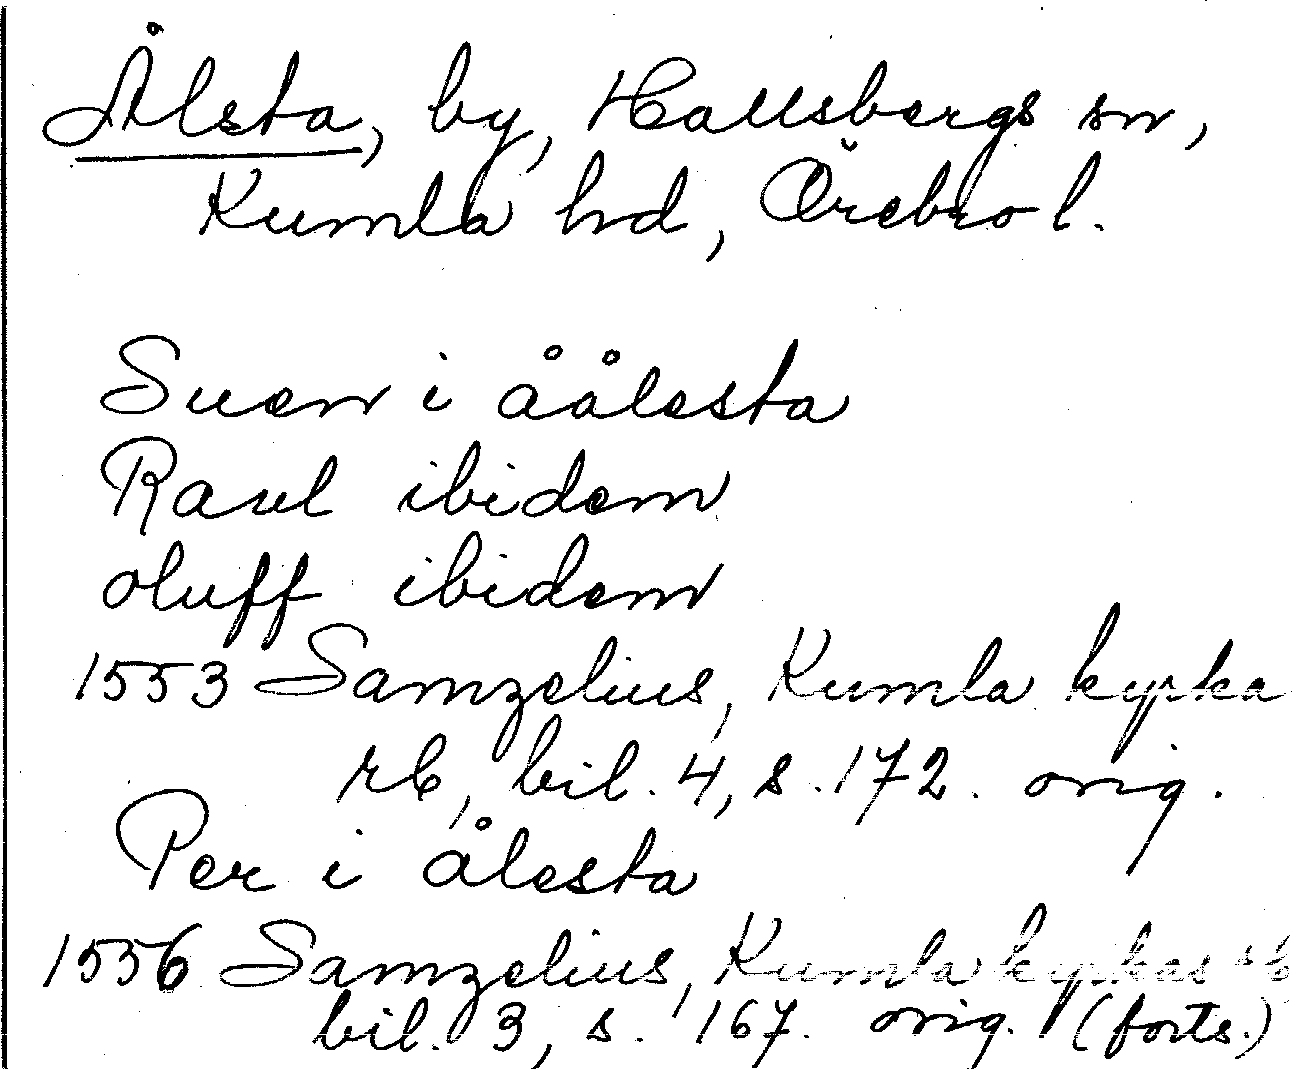 Ålsta, by, Hallsbergs sn,
Kumla hd, Örebro l.
Suen i åålesta
Raul ibidem
oluff ibidem
1553 Samzelius, Kumla kyrka
rb, bil. 4, s. 172. orig.
Per i ålesta
1556 Samzelius, Kumla kyrkas rb
bil. 3, s. 167. orig. (forts.)